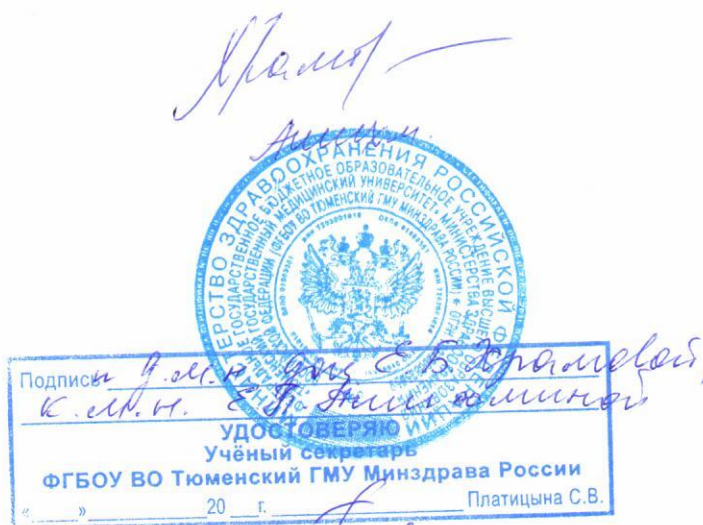 МИНИСТЕРСТВО ЗДРАВООХРАНЕНИЯ РОССИЙСКОЙ ФЕДЕРАЦИИ
ГОСУДАРСТВЕННОЕ БЮДЖЕТНОЕ ОБРАЗОВАТЕЛЬНОЕ УЧРЕЖДЕНИЕ ВЫСШЕГО
ГОСУДАРСТВЕННЫЙ МЕДИЦИНСКИЙ УНИВЕРСИТЕТ» МИНИСТЕРСТВА
ФЕДЕРАЦИИ (ФГБОУ ВО ТЮМЕНСКИЙ ГМУ МИНЗДРАВА РОССИИ)
Подписи д.м.н. доц Е.Б. Храмовой,
к.м.н. Е.П.
УДОСТОВЕРЯЮ
Учёный секретарь
ФГБОУ ВО Тюменский ГМУ Минздрава России
«___»__________20 __г.__________ Платицына С.В.